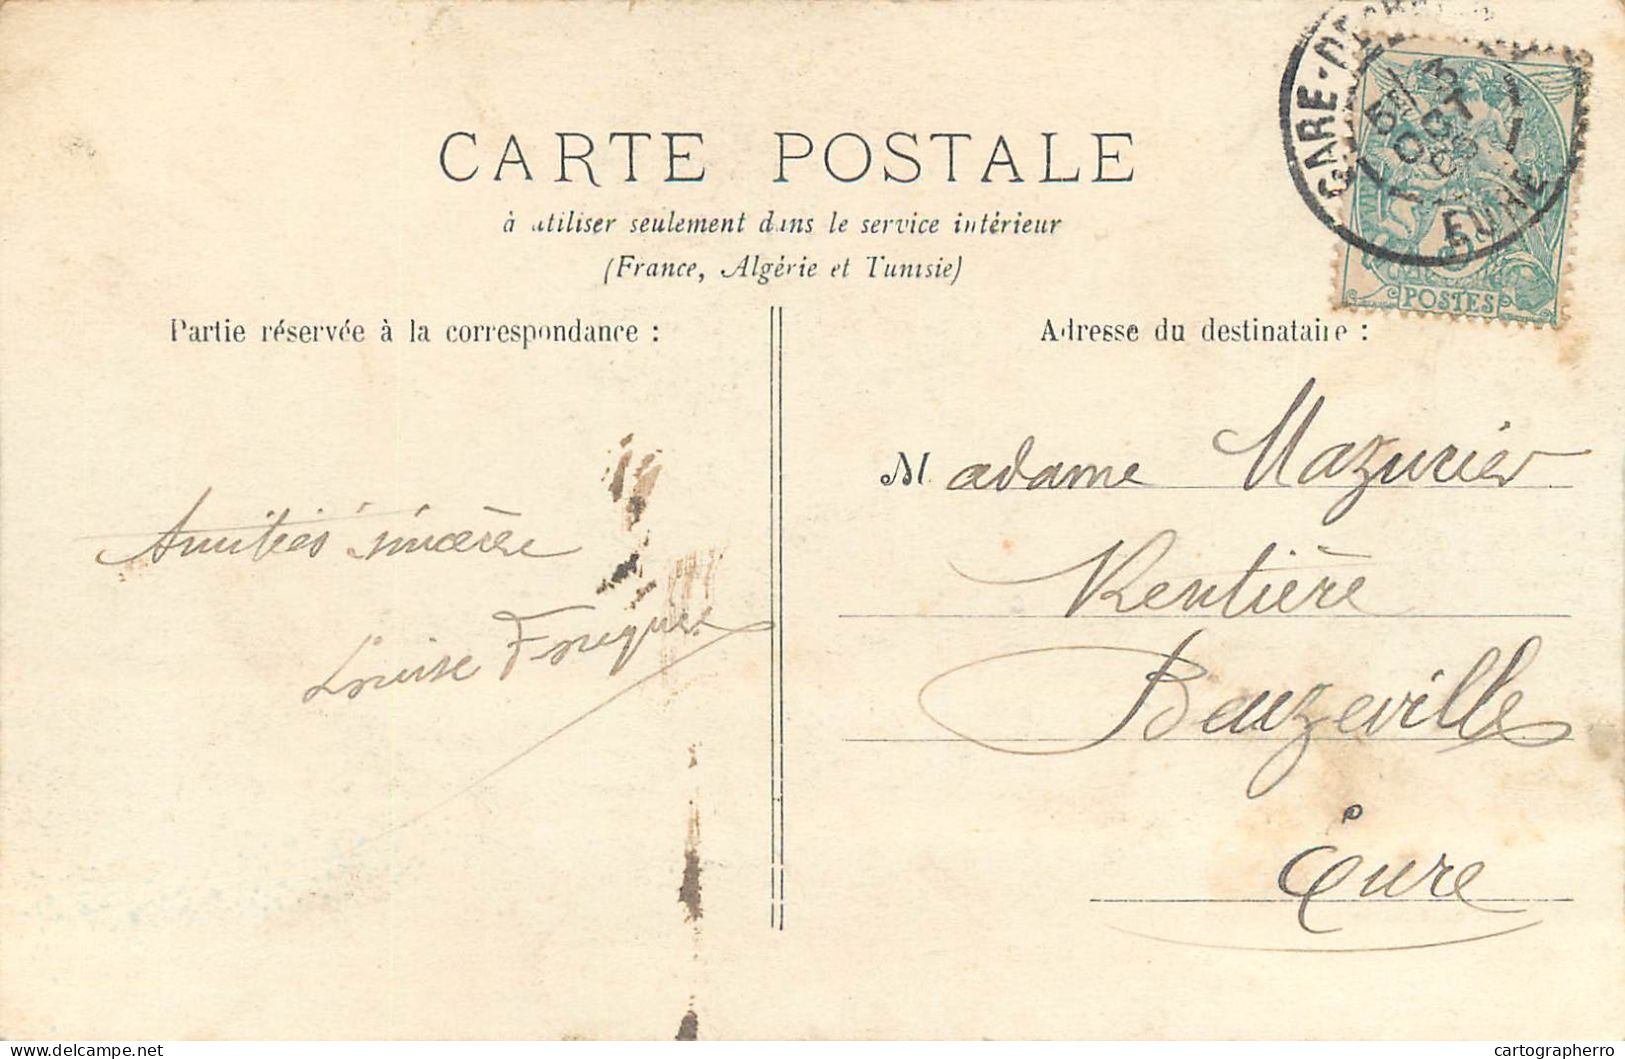 CARTE POSTALE
à utiliser seulement dans le service intérieur
(France, Algérie et Tunisie)
Partie réservée à la correspondance :
Adresse du destinataire :
GARE-DE
EURE
OCT
5
POSTES
Madame Mazurier
Rentière
Beuzeville
Eure
Amitiés sincère
Louise
cartographerro